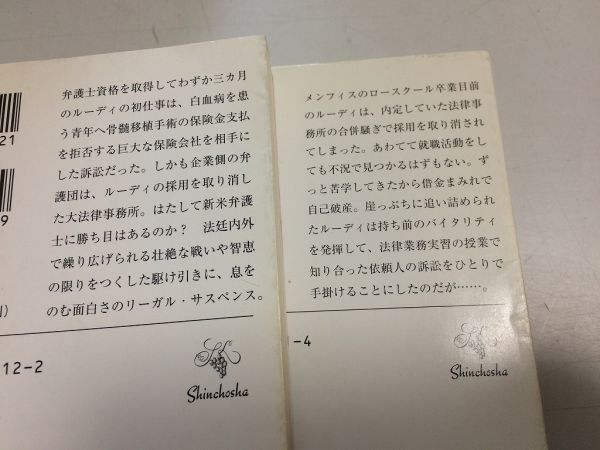 弁護士資格を取得してわずか三カ月
のルーディの初仕事は、白血病を患
う青年へ骨髄移植手術の保険金支払
を拒否する巨大な保険会社を相手に
した訴訟だった。しかも企業側の弁
護団は、ルーディの採用を取り消し
た大法律事務所。はたして新米弁護
士に勝ち目はあるのか? 法廷内外
で繰り広げられる壮絶な戦いや智恵
の限りをつくした駆け引きに、息を
のむ面白さのリーガル・サスペンス。
21
9
)
12-2
Shinchosha
メンフィスのロースクール卒業目前
のルーディは、内定していた法律事
務所の合併騒ぎで採用を取り消され
てしまった。あわてて就職活動をし
ても不況で見つかるはずもない。ず
っと苦学してきたから借金まみれで
自己破産。崖っぷちに追い詰められ
たルーディは持ち前のバイタリティ
を発揮して、法律業務実習の授業で
知り合った依頼人の訴訟をひとりで
手掛けることにしたのだが……。
-4
Shinchosha